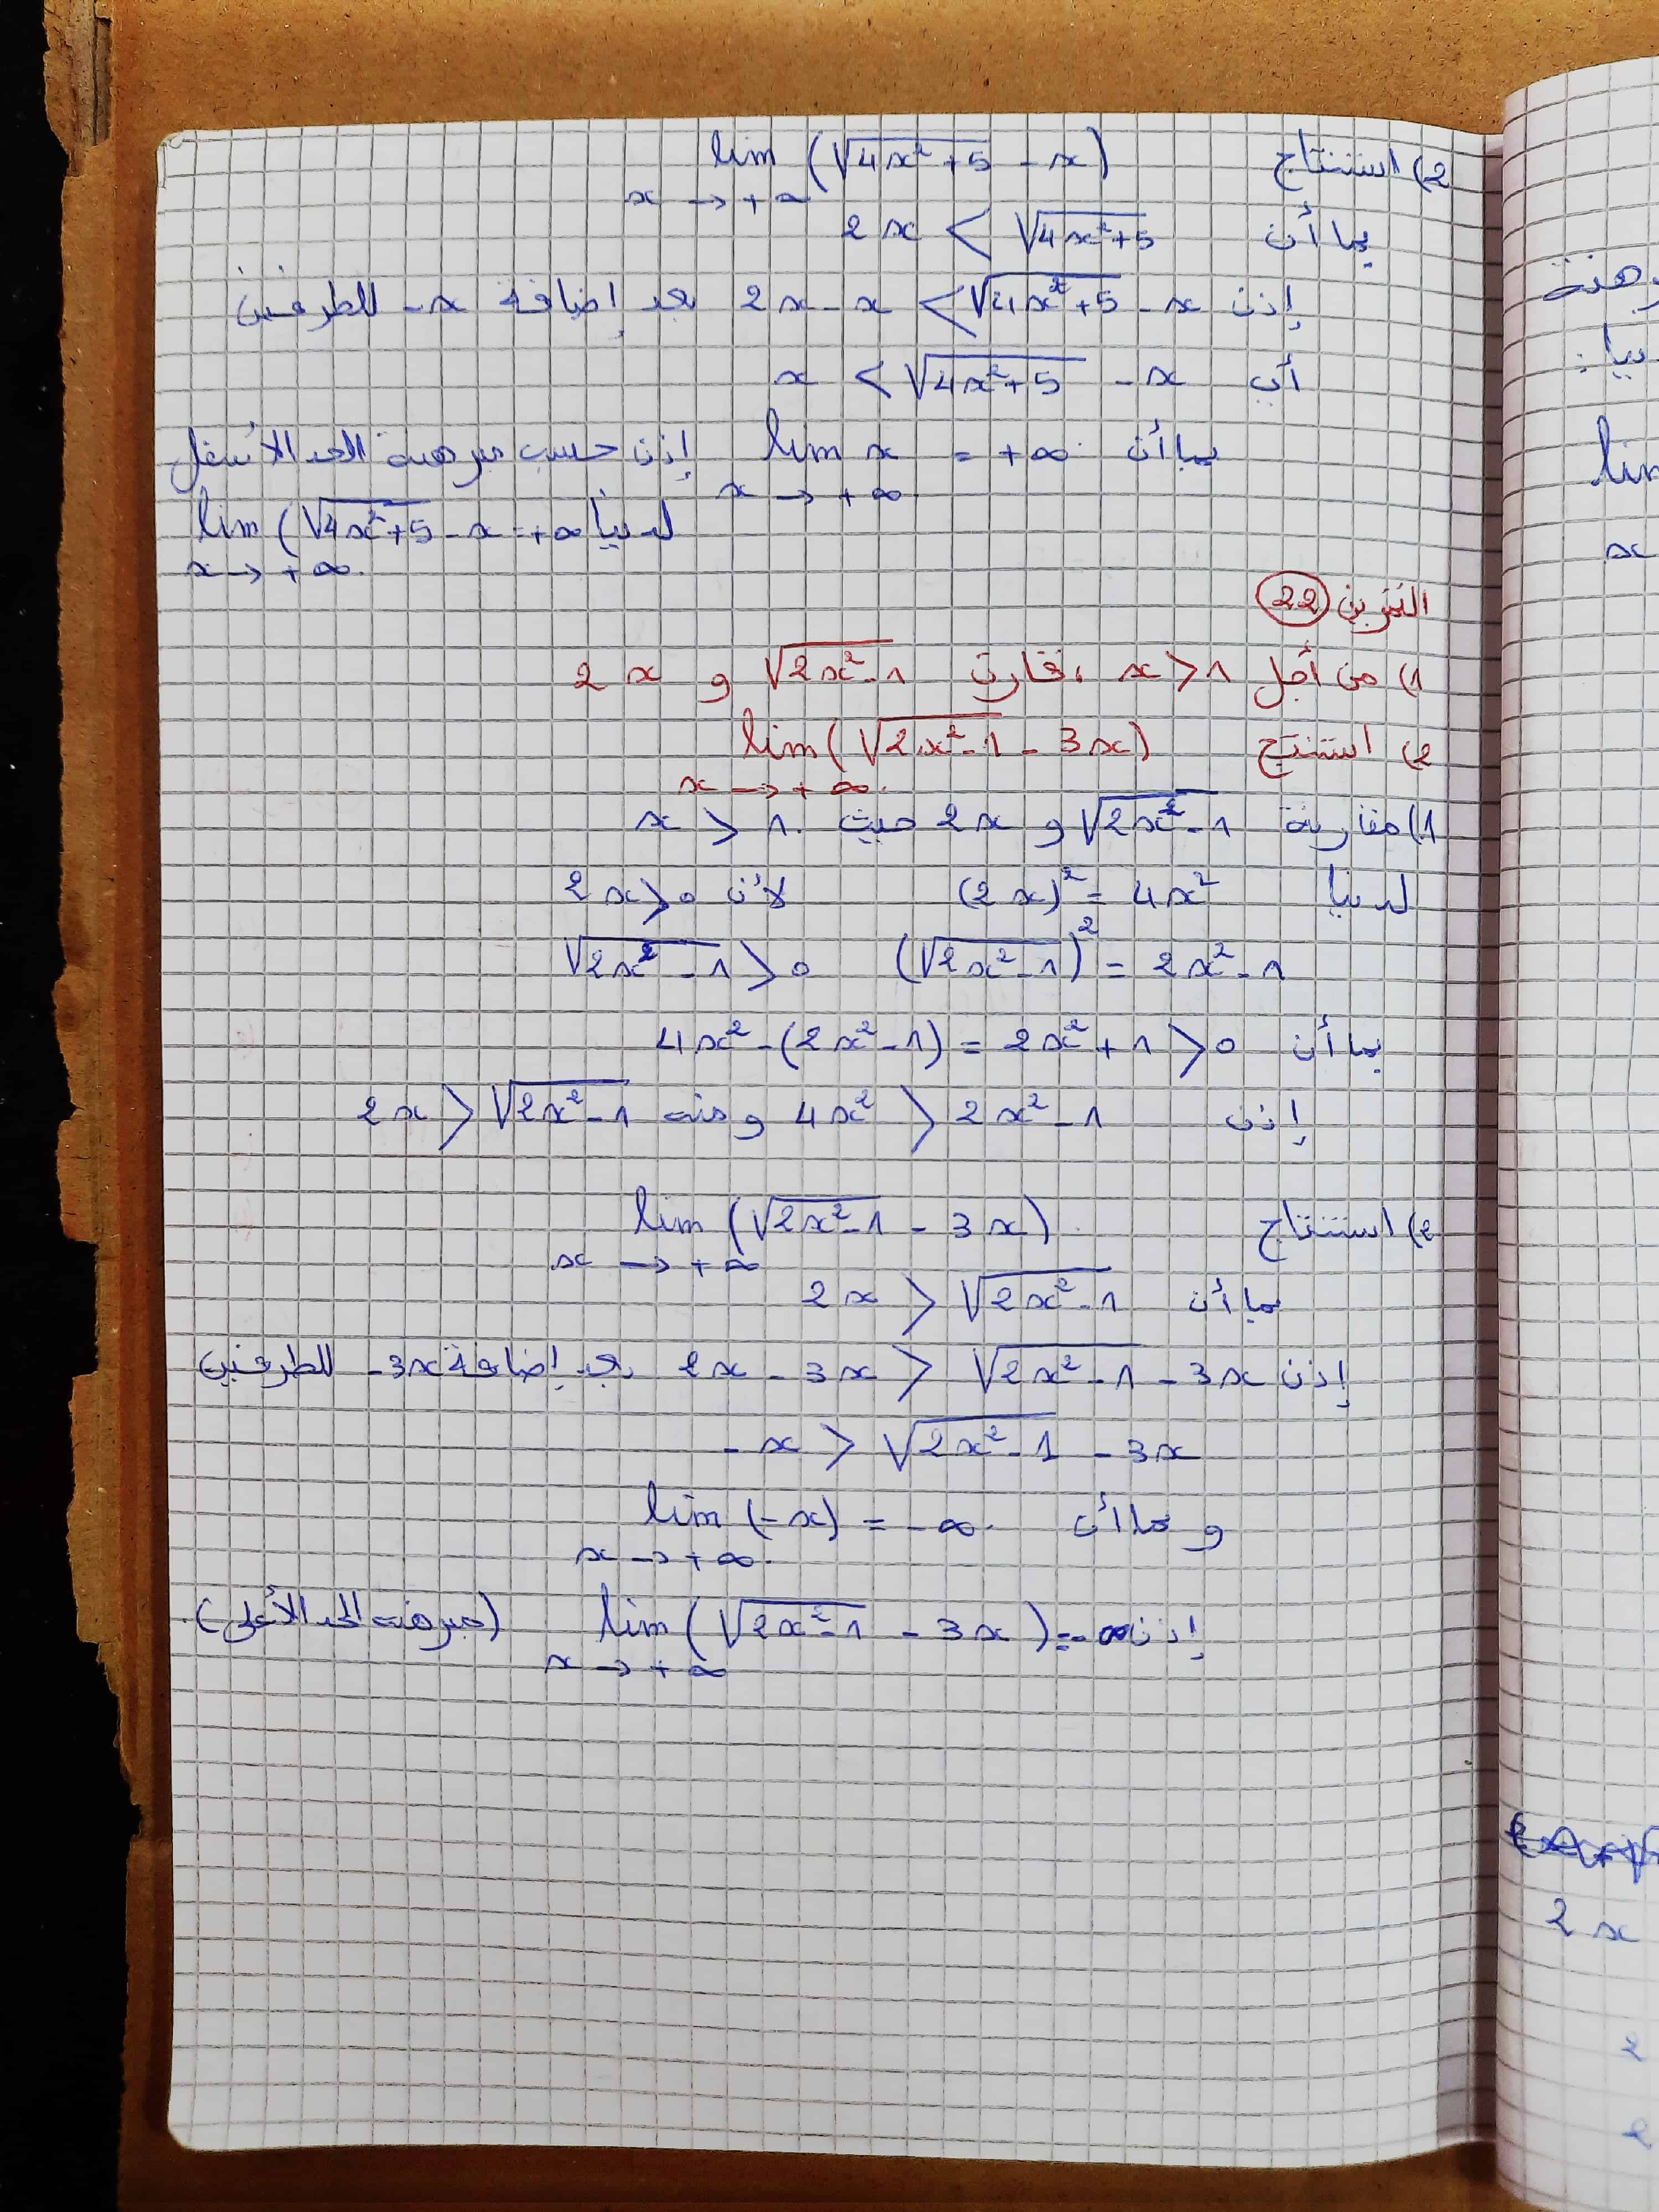 2) استنتاج lim (√4x²+5 - x)
x → +∞
بما أن 2x < √4x²+5
إذن 2x - x < √4x²+5 - x بعد إضافة -x للطرفين
أي x < √4x²+5 - x
بما أن lim x = +∞ إذن حسب مبرهنة الحد الأسفل
x → +∞
لدينا lim (√4x²+5 - x = +∞
x → +∞.
التمرين 22
1) من أجل x > 1 ، قارن √2x²-1 و 2x
2) استنتج lim (√2x²-1 - 3x)
x → +∞.
1) مقارنة √2x²-1 و 2x حيث x > 1.
لدينا (2x)² = 4x² لأن 2x > 0
(√2x²-1)² = 2x²-1 √2x²-1 > 0
بما أن 4x² - (2x²-1) = 2x²+1 > 0
إذن 4x² > 2x²-1 و منه 2x > √2x²-1
2) استنتاج lim (√2x²-1 - 3x)
x → +∞
بما أن 2x > √2x²-1
إذن 2x - 3x > √2x²-1 - 3x بعد إضافة -3x للطرفين
-x > √2x²-1 - 3x
و بما أن lim (-x) = -∞.
x → +∞.
إذن lim (√2x²-1 - 3x) = -∞ (مبرهنة الحد الأعلى).
x → +∞
lim
x
2x
2